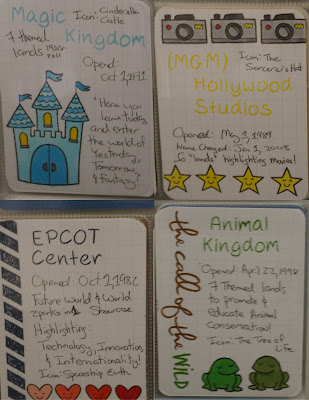 Magic
Kingdom
Icon: Cinderella
Castle
7 themed
lands
Opened:
Oct 1, 1971
"Here you
leave today
and enter
the world of
Yesterday,
Tomorrow,
& Fantasy!"
(MGM)
Hollywood
Studios
Icon: The
Sorcerer's Hat
Opened: May 1, 1989
Name Changed: Jan 1, 2008
6 "lands" highlighting Movies!
EPCOT
Center
Opened: Oct 1, 1982
Future World & World
Showcase
2 parks in 1
Highlighting:
Technology, Innovation,
& Internationality!
Icon: Spaceship Earth
the call of the WILD
Animal
Kingdom
Opened: April 22, 1998
7 Themed lands
to promote &
Educate Animal
Conservation!
Icon: The Tree of
Life